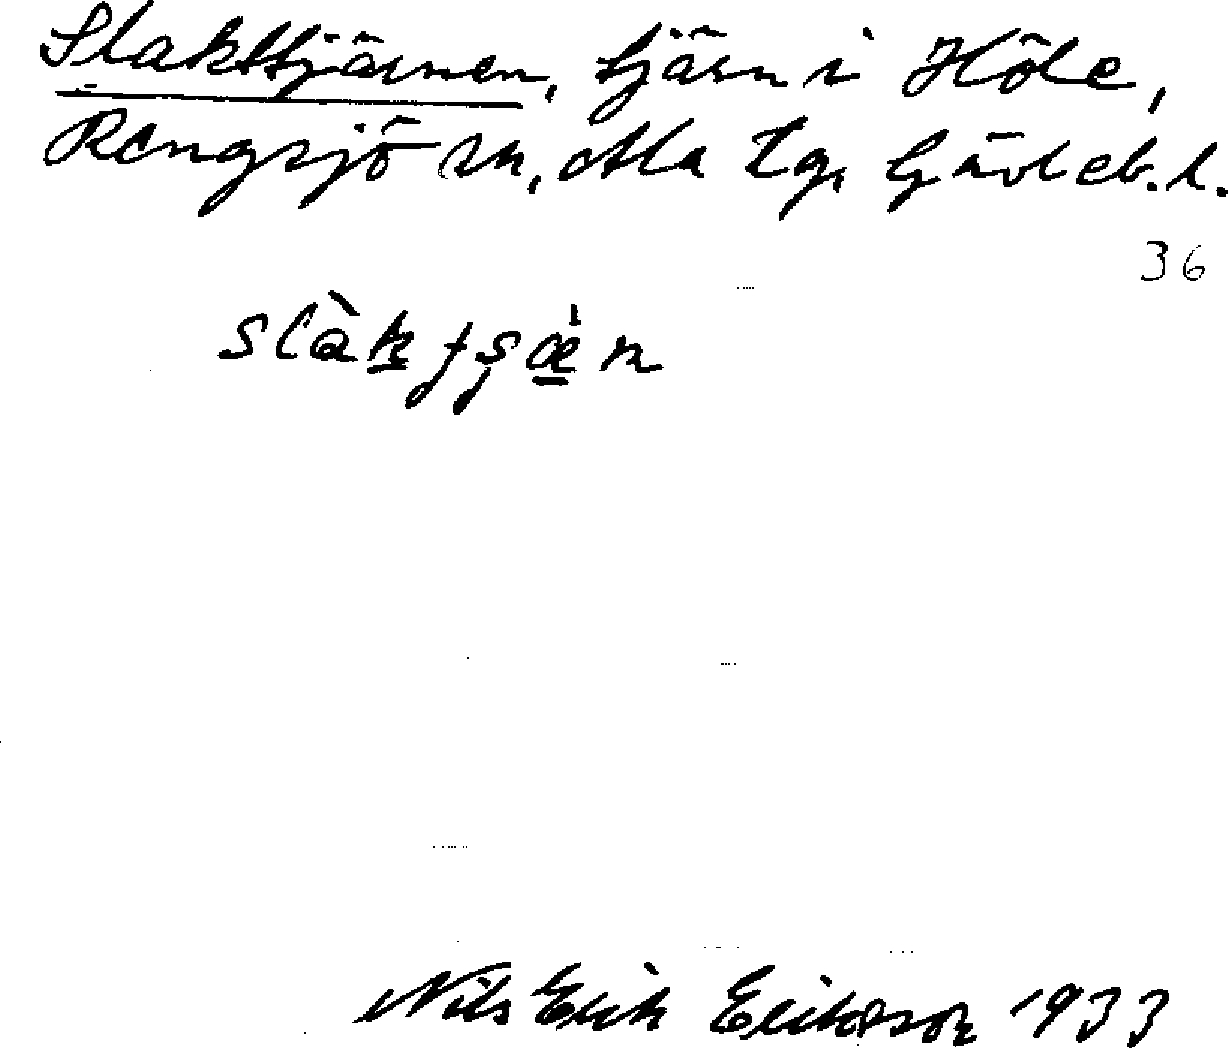 Slakttjärnen, tjärn i Höle,
Rengsjö sn, Ala tg, Gävleb. l.
36
Nils Erik Eriksson 1933